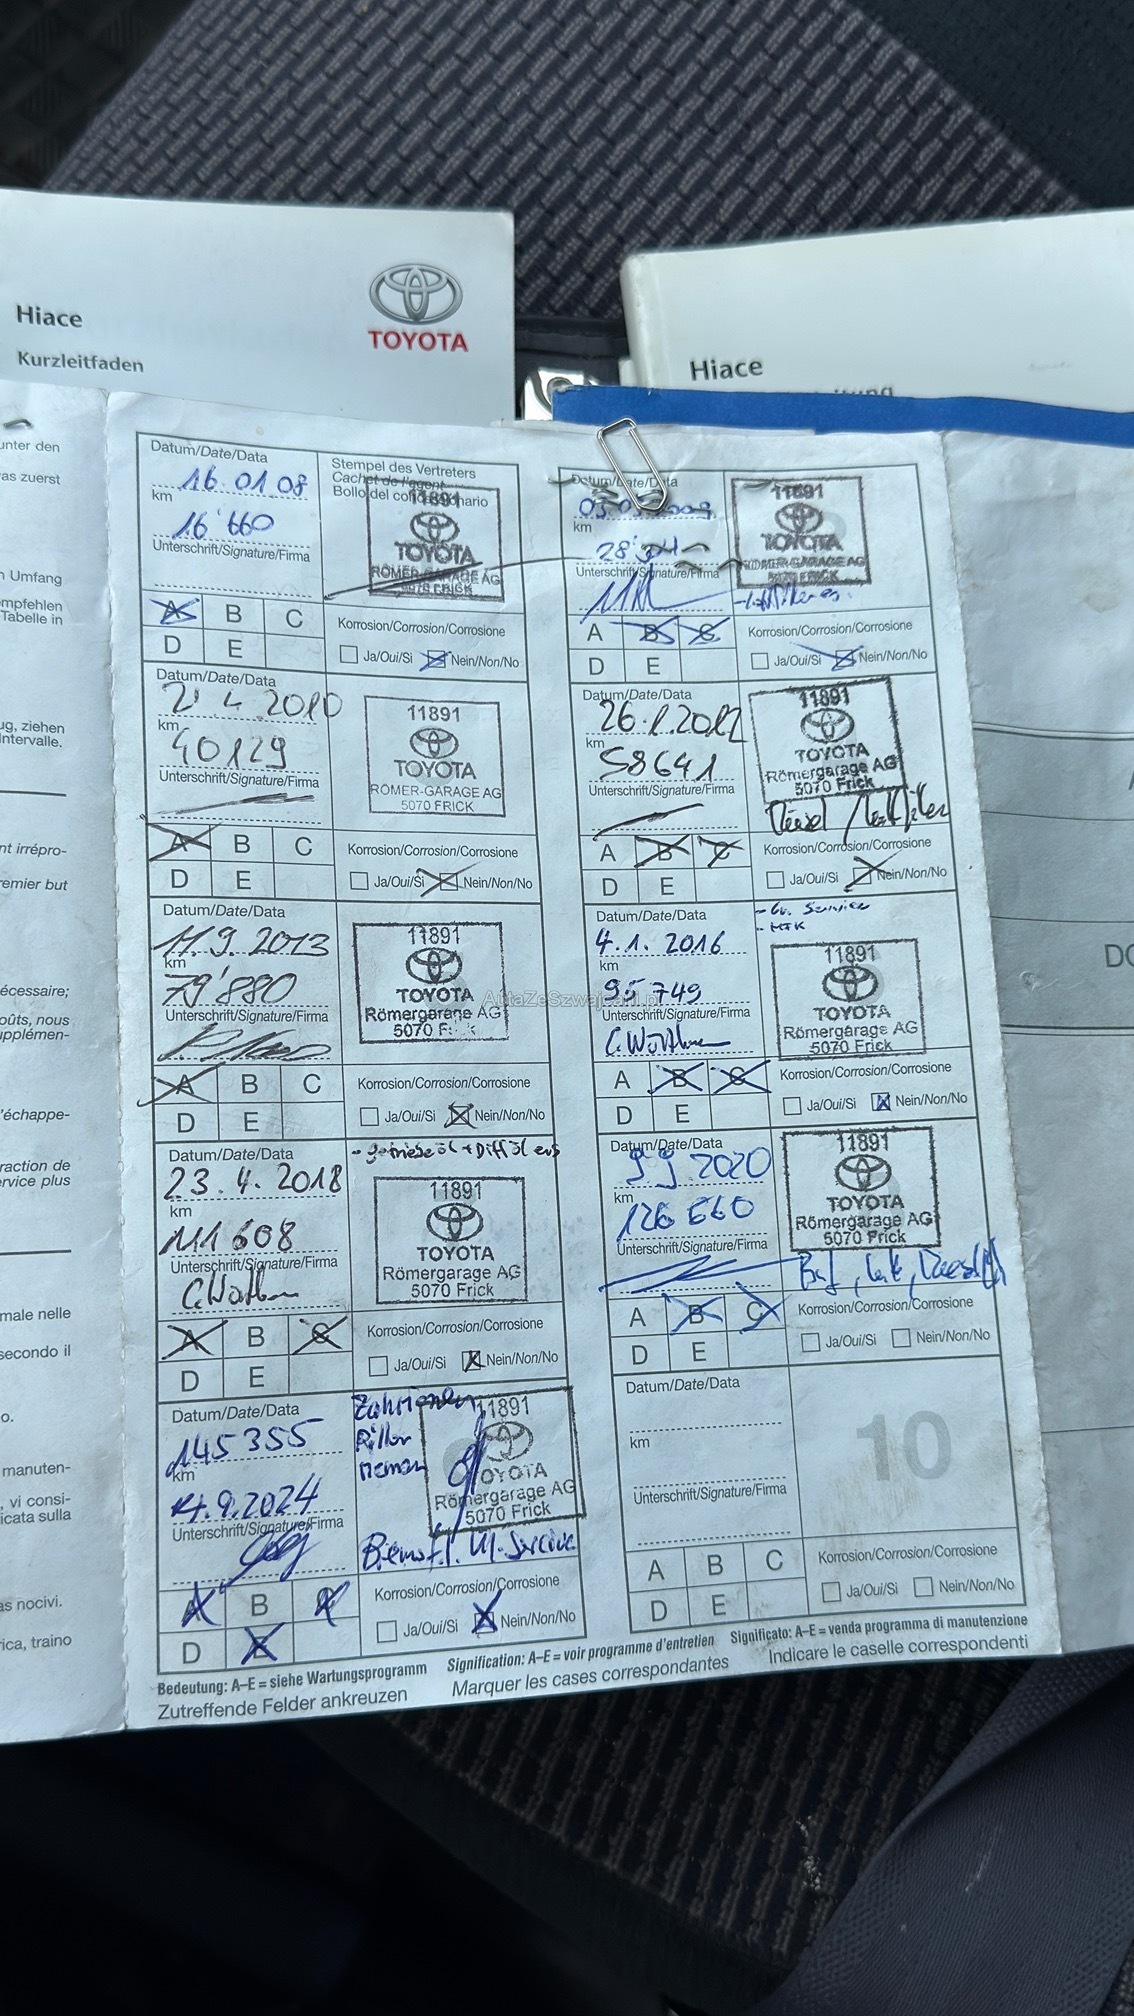 Hiace
Kurzleitfaden
TOYOTA
Hiace
unter den
as zuerst
n Umfang
mpfehlen
Tabelle in
ug, ziehen
Intervalle.
nt irrépro-
remier but
écessaire;
oûts, nous
upplémen-
l'échappe-
raction de
ervice plus
male nelle
secondo il
o.
manuten-
, vi consi-
icata sulla
as nocivi.
rica, traino
Datum/Date/Data
16.01.08
km
16'660
Unterschrift/Signature/Firma
Stempel des Vertreters
Cachet de l'agent
Bollo del concessionario
11891
TOYOTA
RÖMER-GARAGE AG
5070 FRICK
A B C
D E
Korrosion/Corrosion/Corrosione
Ja/Oui/Si Nein/Non/No
Datum/Date/Data
03.03.2009
km
Unterschrift/Signature/Firma
11891
TOYOTA
RÖMER-GARAGE AG
5070 FRICK
A B C
D E
Korrosion/Corrosion/Corrosione
Ja/Oui/Si Nein/Non/No
Datum/Date/Data
21.4.2010
km
40129
Unterschrift/Signature/Firma
11891
TOYOTA
RÖMER-GARAGE AG
5070 FRICK
A B C
D E
Korrosion/Corrosion/Corrosione
Ja/Oui/Si Nein/Non/No
Datum/Date/Data
26.1.2012
km
58641
Unterschrift/Signature/Firma
11891
TOYOTA
Römergarage AG
5070 Frick
A B C
D E
Korrosion/Corrosion/Corrosione
Ja/Oui/Si Nein/Non/No
Datum/Date/Data
11.9.2013
km
79'880
Unterschrift/Signature/Firma
11891
TOYOTA
Römergarage AG
5070 Frick
A B C
D E
Korrosion/Corrosion/Corrosione
Ja/Oui/Si Nein/Non/No
Datum/Date/Data
4.1.2016
km
95749
Unterschrift/Signature/Firma
- Gr. Service
- MTK
11891
TOYOTA
Römergarage AG
5070 Frick
A B C
D E
Korrosion/Corrosion/Corrosione
Ja/Oui/Si Nein/Non/No
AutaZeSzwajcarii.pl
Datum/Date/Data
23.4.2018
km
111608
Unterschrift/Signature/Firma
- getriebeöl + Difföl ers
11891
TOYOTA
Römergarage AG
5070 Frick
A B C
D E
Korrosion/Corrosion/Corrosione
Ja/Oui/Si Nein/Non/No
Datum/Date/Data
9.9.2020
km
126660
Unterschrift/Signature/Firma
11891
TOYOTA
Römergarage AG
5070 Frick
A B C
D E
Korrosion/Corrosion/Corrosione
Ja/Oui/Si Nein/Non/No
Datum/Date/Data
145355
km
14.9.2024
Unterschrift/Signature/Firma
Zahnriemen
11891
TOYOTA
Römergarage AG
5070 Frick
Bremsfl.
A B C
D E
Korrosion/Corrosion/Corrosione
Ja/Oui/Si Nein/Non/No
Datum/Date/Data
km
Unterschrift/Signature/Firma
10
A B C
D E
Korrosion/Corrosion/Corrosione
Ja/Oui/Si Nein/Non/No
Bedeutung: A–E = siehe Wartungsprogramm Signification: A–E = voir programme d'entretien Significato: A–E = venda programma di manutenzione
Zutreffende Felder ankreuzen Marquer les cases correspondantes Indicare le caselle correspondenti